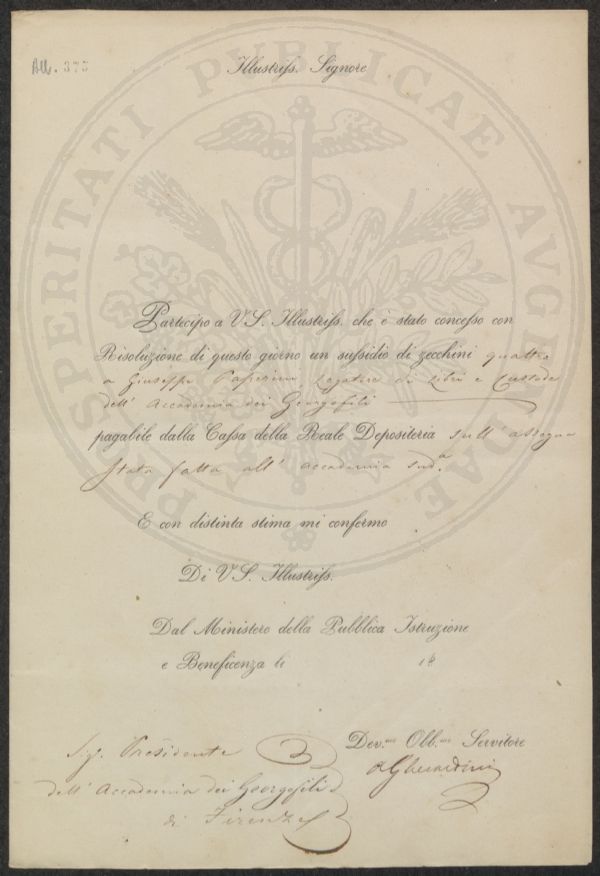 All. 375
Illustriss. Signore
PROSPERITATI PUBLICAE AUGENDAE
Partecipo a V.S. Illustriss. che è stato concesso con
Risoluzione di questo giorno un sussidio di zecchini quattro
a Giuseppe Legatore di Libri e Custode
dell' Accademia dei Georgofili
pagabile dalla Cassa della Reale Depositeria sull' assegna
stata fatta all' accademia sud.a
E con distinta stima mi confermo
Di V.S. Illustriss.
Dal Ministero della Pubblica Istruzione
e Beneficenza li 18
Dev.mo Obb.mo Servitore
Sig. Presidente
dell' Accademia dei Georgofili
di Firenze